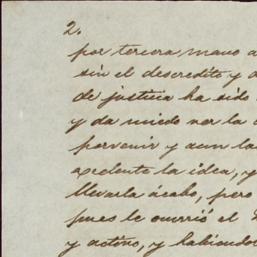 2.
por tercera mano a
sin el descredito y d
de justicia ha sido
y da miedo ver la
porvenir y aun la
expedente la idea, y
llevarla ácabo, pero
pues le ocurrió el
y activo, y habiendo